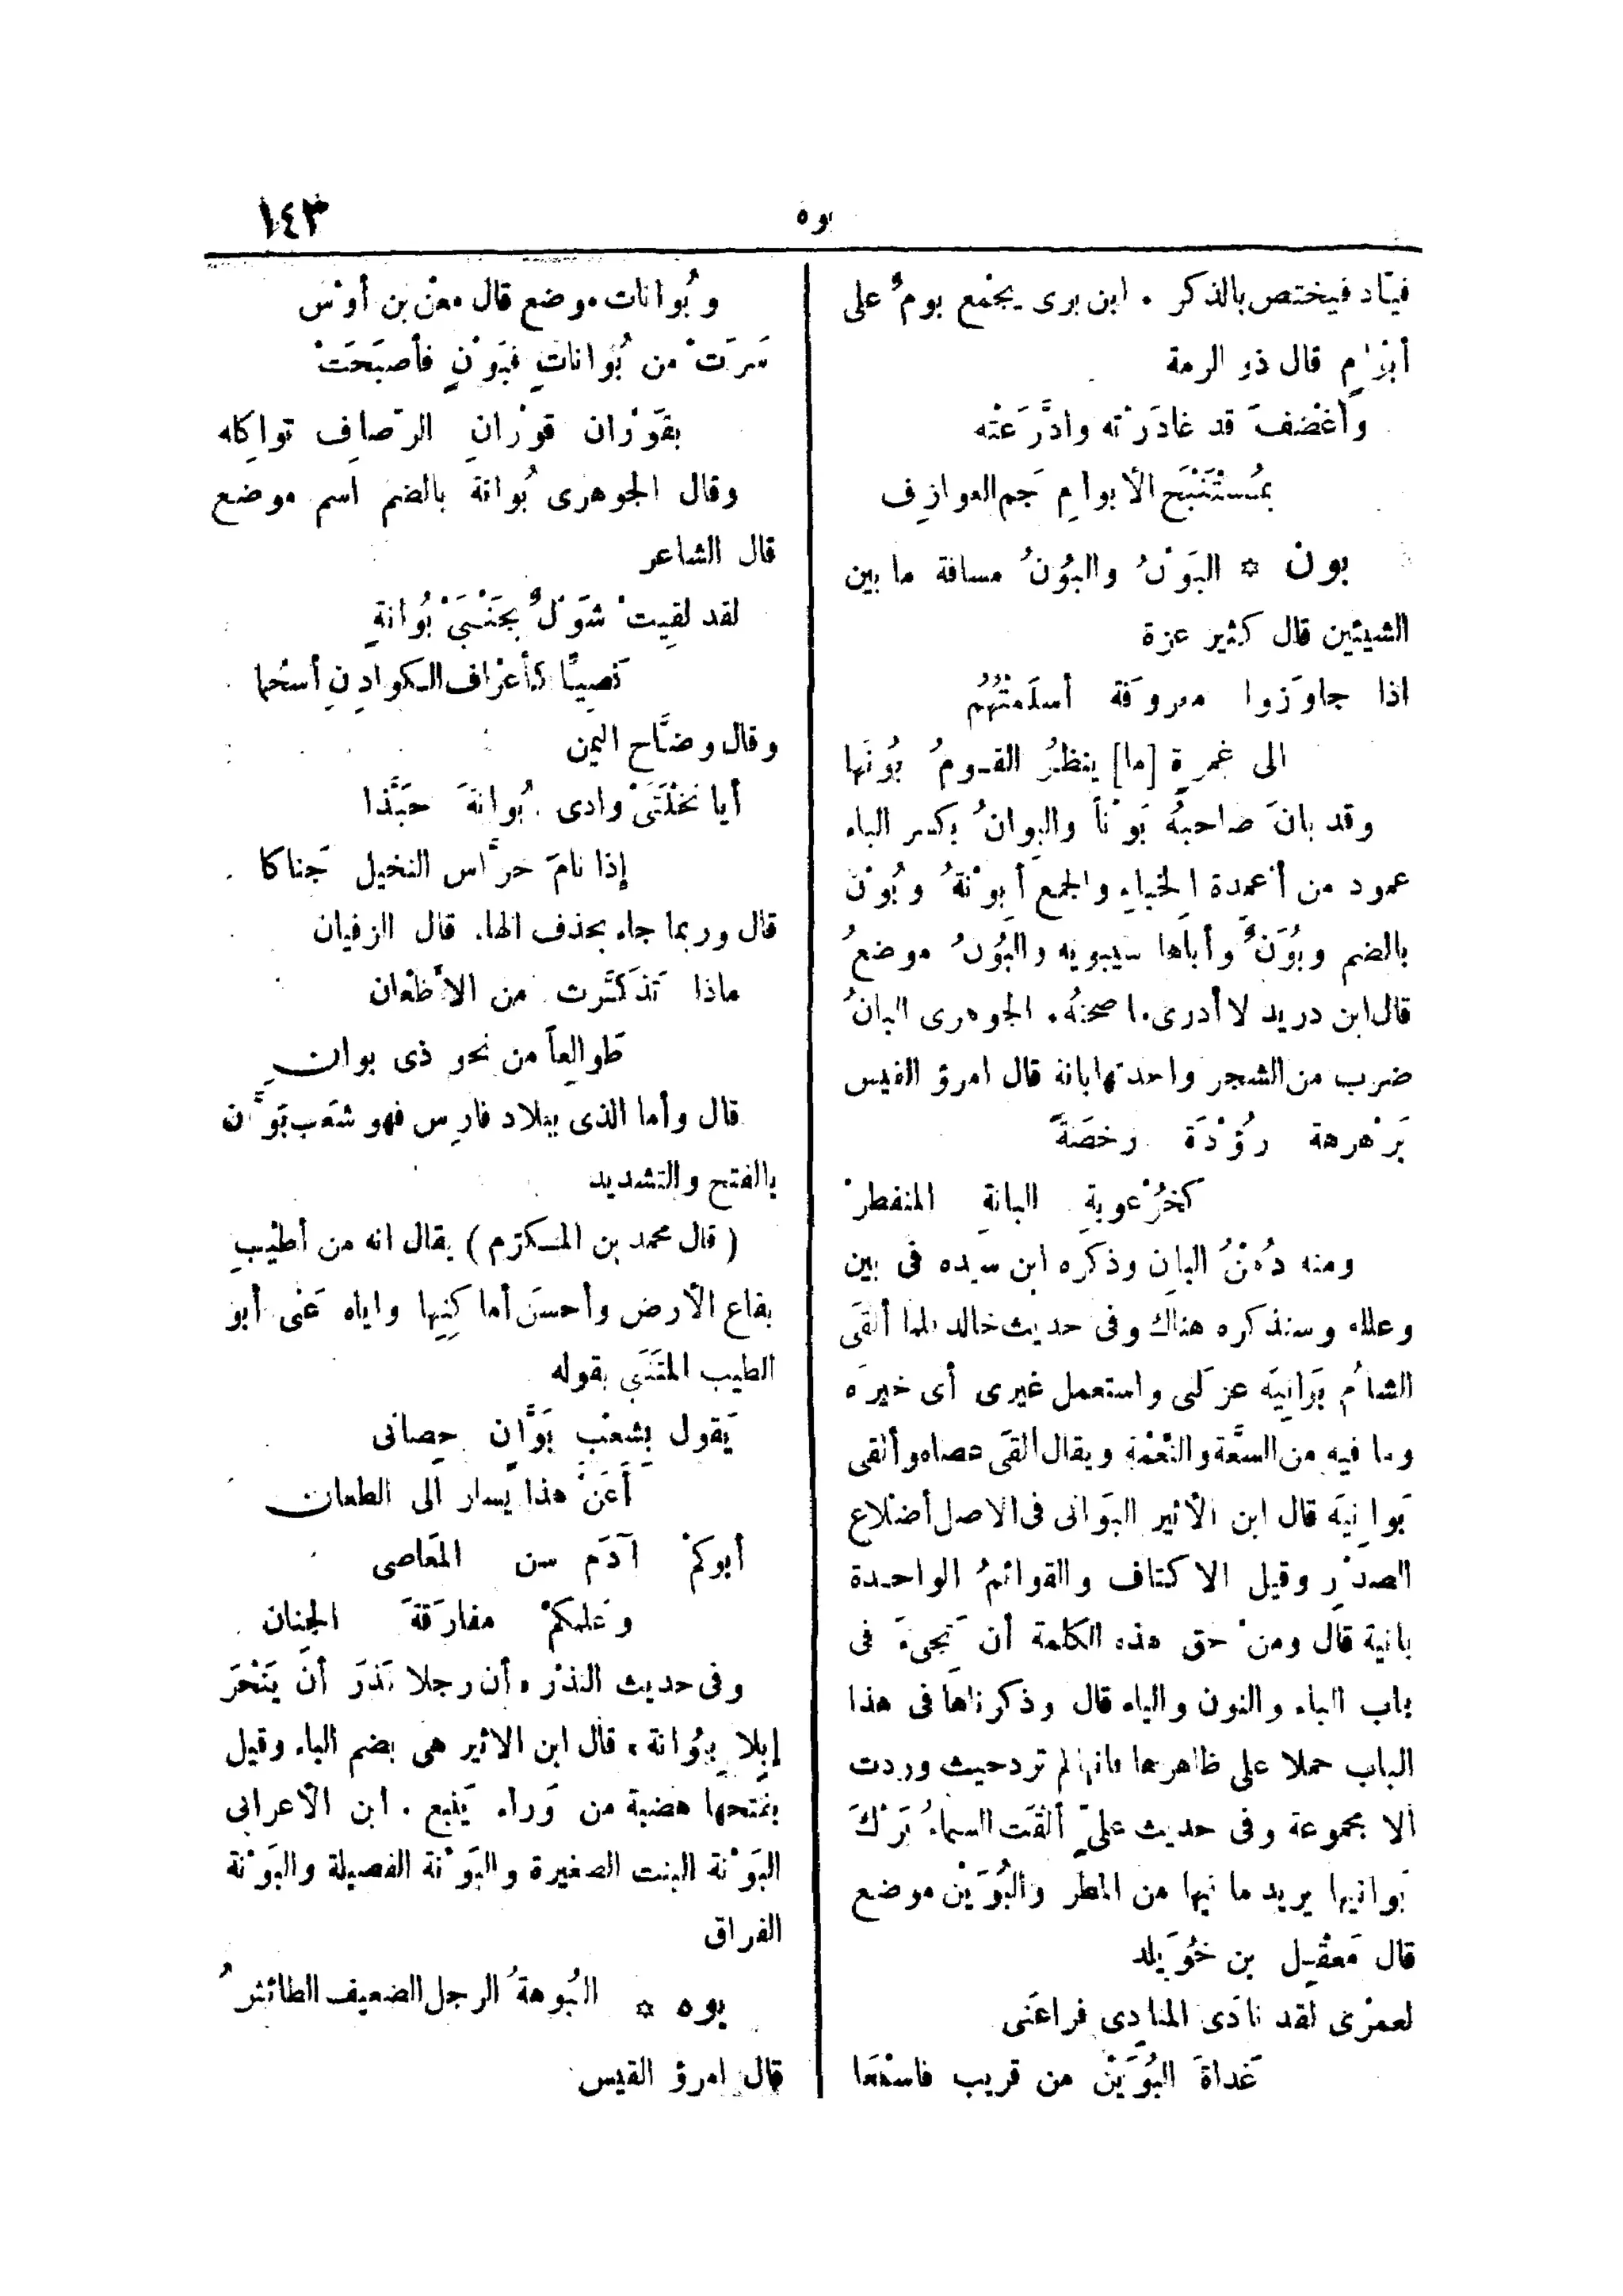 بوه
١٤٣
فيّاد فيختص بالذكر • ابن برى يجمع بومٌ على
أبْوامٍ قال ذو الرمة
وأغْضَفَ قد غادَرْته وادَّرَعْته
بمُسْتَنْبَح الأبوامِ جَم العوازِف
بون * البَوْنُ والبُوُنُ مسافة ما بين
الشيئين قال كثير عزة
اذا جاوَزوا معروفة أسلَمَتْهُمُ
الى غمرةٍ [ما] ينظرُ القومُ بُونَها
وقد بانَ صاحبهُ بَوْناً والبِوانُ بكسر الباء
عمود من أعْمدة الخِباء والجمع أبْوِنةُ وبُوْن
بالضم وبُوَنٌ وأباها سيبويه والبُوُنُ موضعُ
قال ابن دريد لا أدرى ما صحتُه • الجوهرى البانُ
ضرب من الشجر واحدتها بانة قال امرؤ القيس
بَرْهرهة رُؤْدَة رخصَةً
كخُرْعوبةِ البانةِ المنفطرْ
ومنه دُهْنُ البانِ وذكَره ابن سيده فى بين
وعلله وسنذكره هناك وفى حديث خالد لما ألقَى
الشأمُ بَوَانِيَه عزلنى واستعمل غيرى أى خيرَه
وما فيه من السَّعَة والنَّعْمة ويقال ألقَى عصاه وألقى
بَوانِيَه قال ابن الأثير البَوَانى فى الاصل أضْلاع
الصدْر وقيل الاكتاف والقوائمُ الواحدة
بانية قال ومنْ حق هذه الكلمة أن تَجىءَ فى
باب الباء والنون والياء قال وذكرناها فى هذا
الباب حملا على ظاهرها فانها لم ترد حيث وردت
ألا مجموعة وفى حديث علىّ ألقَت السماءُ بَرْكَ
بَوانيها يريد ما فيها من المطر والبُوَيْن موضع
قال مَعْقِل بن خُوَيلد
لعمرْى لقد نادَى المنادِى فراعَنى
غَداةَ البُوَيْن من قريب فاسْمَعَا
وبُوانات موضع قال معْن بن أوْس
سَرَتْ من بُوَاناتٍ فبَوْنٍ فأصبَحَتْ
بقَوْرَان قوْرَانِ الرّصاف تواكِله
وقال الجوهرى بُوانة بالضم اسم موضع
قال الشاعر
لقد لقِيتْ شَوْلٌ بجَنْبَىْ بُوَانةٍ
نَصِيًّا كأعْرَاف الكوادِنِ أسْحَما
وقال وضَّاح اليمن
أيا نَخْلَتَىْ وادى بُوانةَ حَبَّذا
إذا نامَ حرَّاس النخيل جَناكا
قال وربما جاء بحذف الهاء قال الزفيان
ماذا تَذكَّرت من الأظْعان
طوالِعاً من نحو ذى بوانِ
قال وأما الذى ببلاد فارِس فهو شعَب بَوَّان
بالفتح والتشديد
(قال محمد بن المكرّم) يقال انه من أطيَبِ
بقاع الأرض وأحسَن أماكِنِها واياه عَنى أبو
الطيب المتَنَبى بقوله
يَقول بِشِعْبِ بَوَّانٍ حِصانى
أعَنْ هذا يُسار الى الطعانِ
أبوكمْ آدَم سن المَعَاصى
وعَلمكمْ مفارَقةَ الجِنان
وفى حديث النذرْ • أن رجلا نَذَرَ أنَ يَنْحَرَ
إبِلا بِبُوَانة • قال ابن الاثير هى بضم الباء وقيل
بفَتحها هضبة من وَراء يَنْبع • ابن الأعرابى
البَوْنة البنت الصغيرة والبَوْنة الفصيلة والبَوْنة
الفراق
بوه * البُوهةُ الرجل الضعيف الطائشُ
قال امرؤ القيس